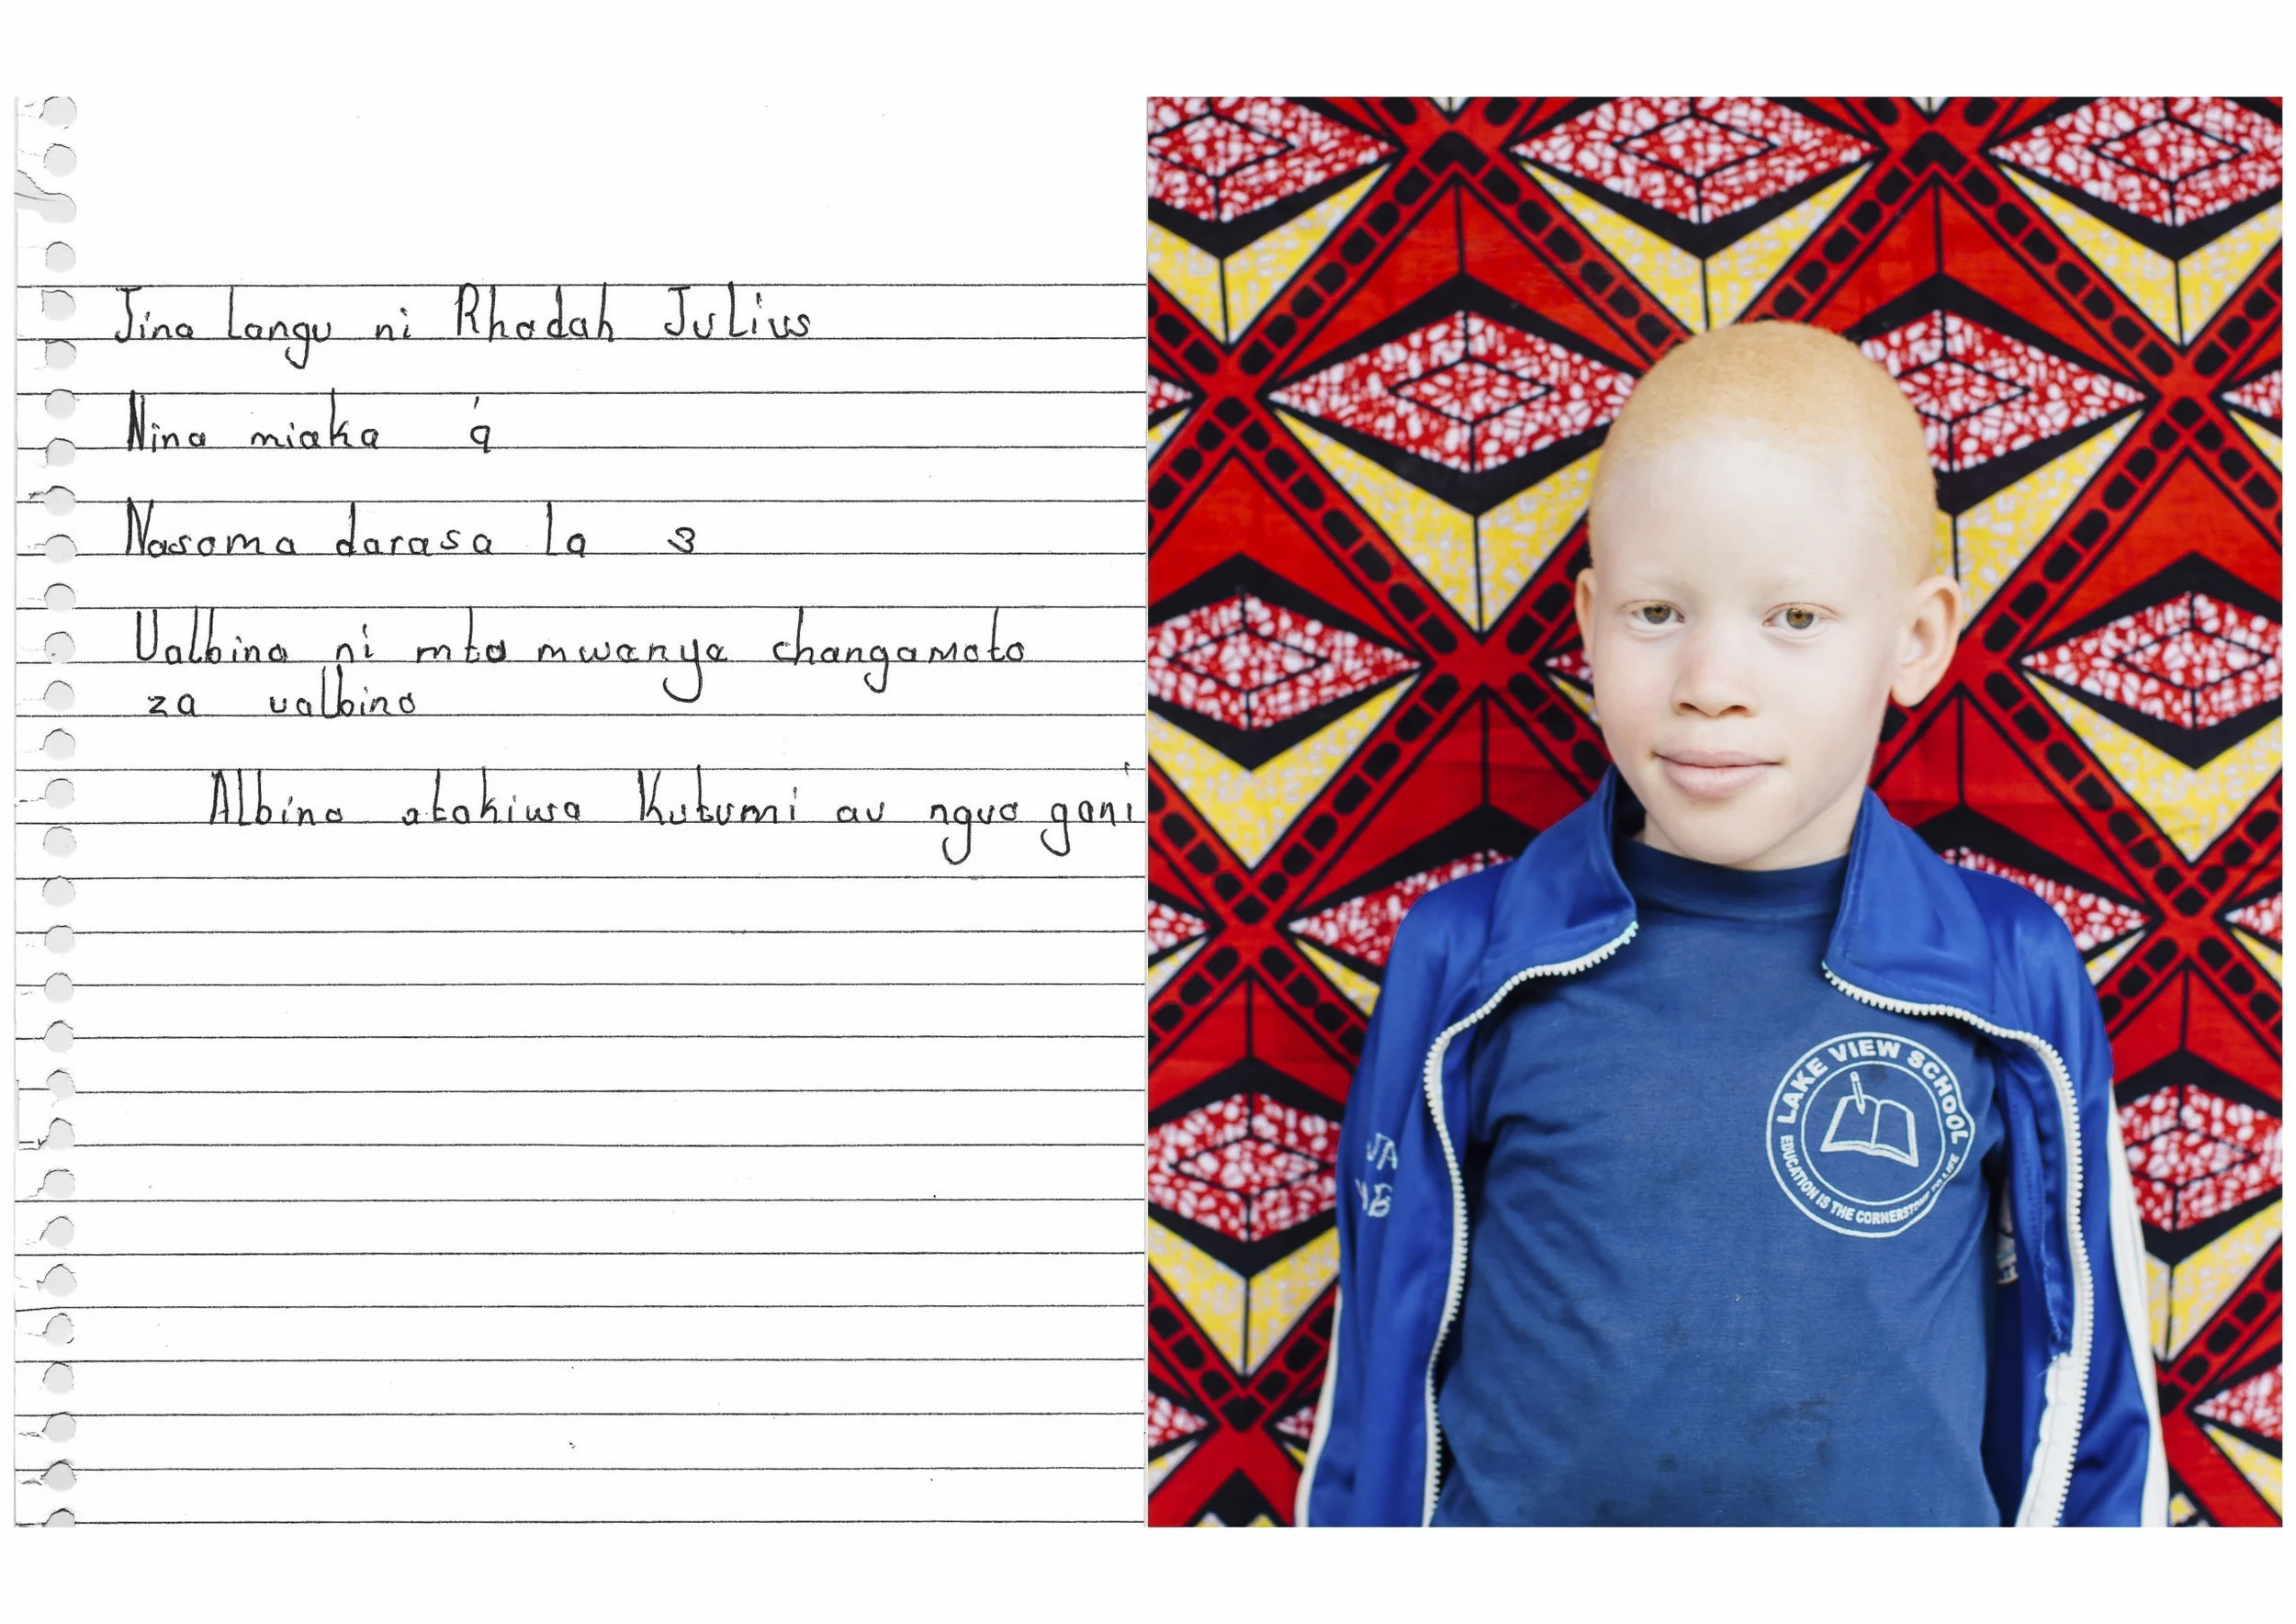 Jina langu ni Rhodah Julius
Nina miaka 9
Nasoma darasa la 3
Ualbino ni mto mwanya changamoto
za ualbino
Albino atakiwa Kutumi au nguo gani
LAKE VIEW SCHOOL
EDUCATION IS THE CORNERSTONE TO LIFE
JA